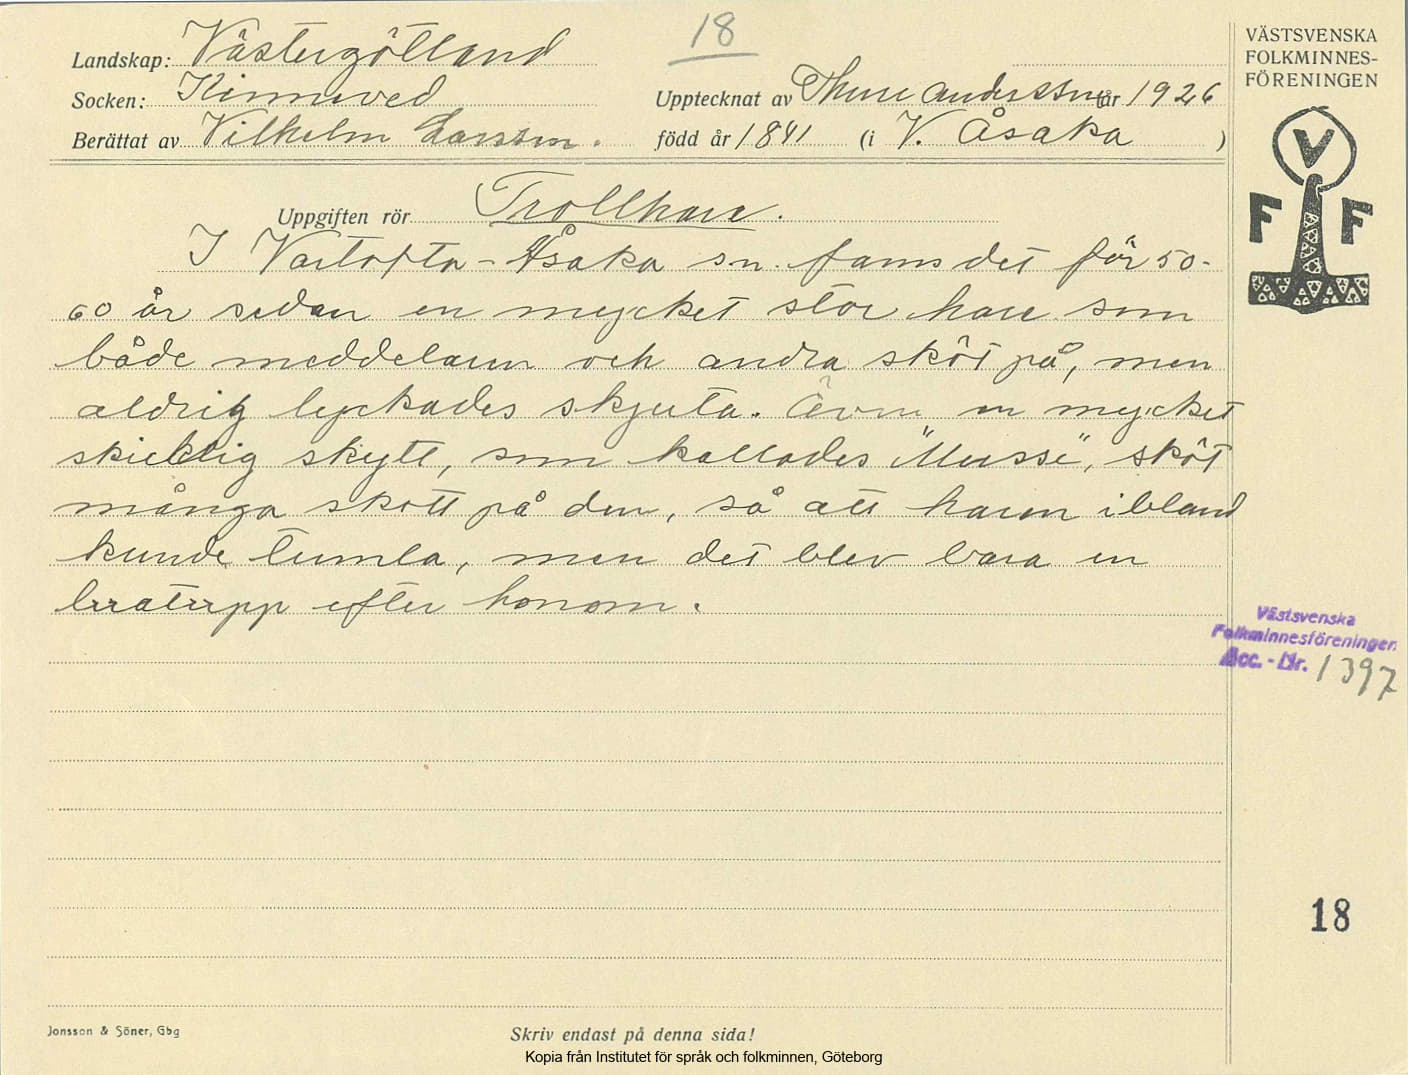 18
Landskap: Västergötland
Socken: Kinneved
Upptecknat av Thure Andersson år 1926
Berättat av Vilhelm Larsson. född år 1841 (i V. Åsaka )
VÄSTSVENSKA
FOLKMINNES-
FÖRENINGEN
V
F F
Uppgiften rör Trollhare.
I Vartofta-Åsaka sn. fanns det för 50-
60 år sedan en mycket stor hare som
både meddelaren och andra sköt på, men
aldrig lyckades skjuta. Även en mycket
skicklig skytt, som kallades "Musse", sköt
många skott på den, så att haren ibland
kunde tumla, men det blev bara en
luatupp efter honom.
Västsvenska
Folkminnesföreningen
Acc.-Nr. 1397
18
Jonsson & Söner, Gbg
Skriv endast på denna sida!
Kopia från Institutet för språk och folkminnen, Göteborg